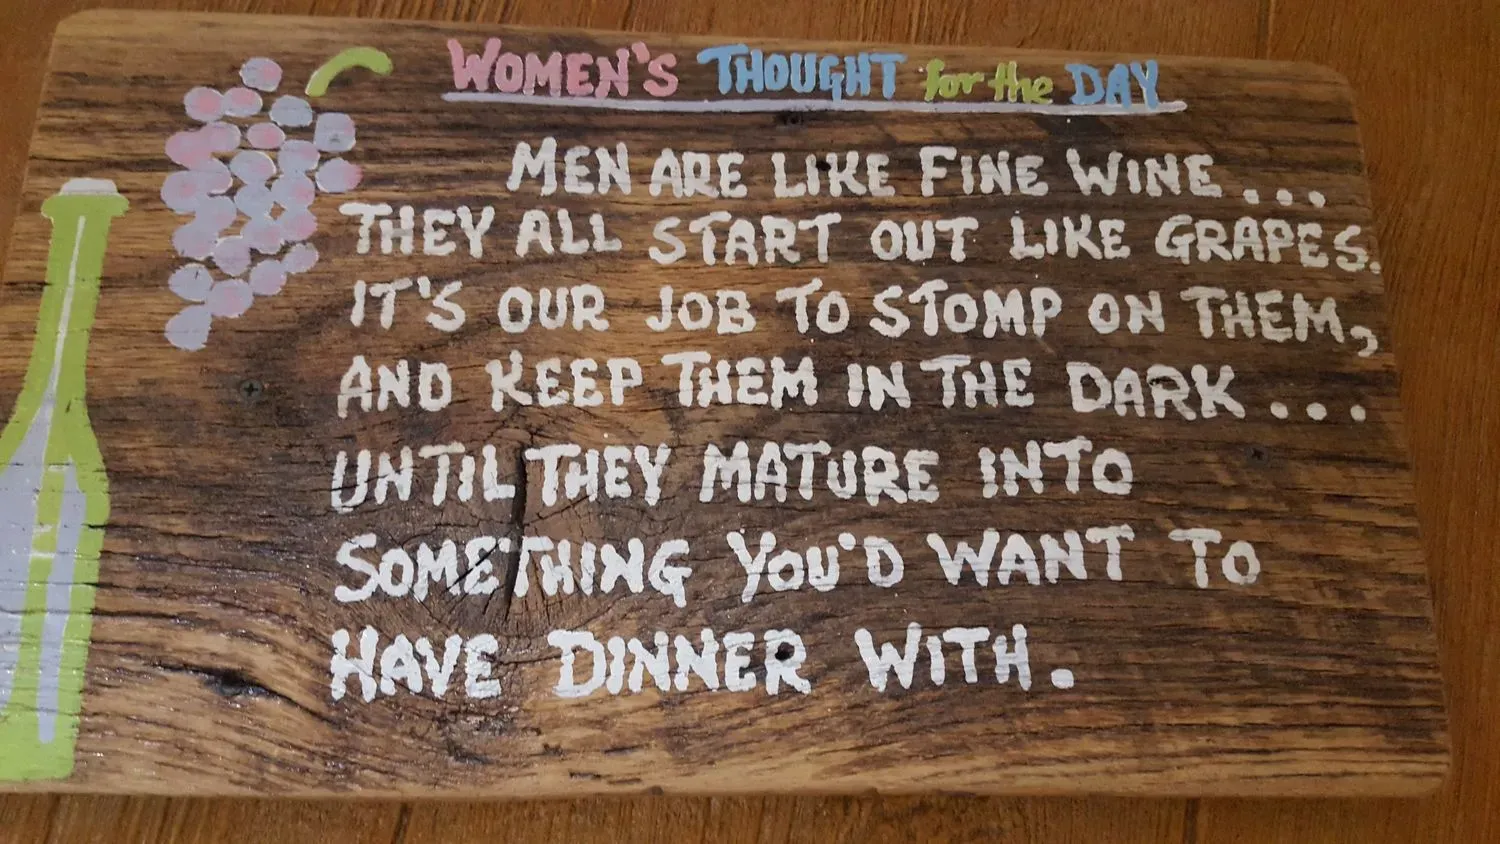 WOMEN'S THOUGHT for the DAY
MEN ARE LIKE FINE WINE...
THEY ALL START OUT LIKE GRAPES.
IT'S OUR JOB TO STOMP ON THEM,
AND KEEP THEM IN THE DARK...
UNTIL THEY MATURE INTO
SOMETHING YOU'D WANT TO
HAVE DINNER WITH.